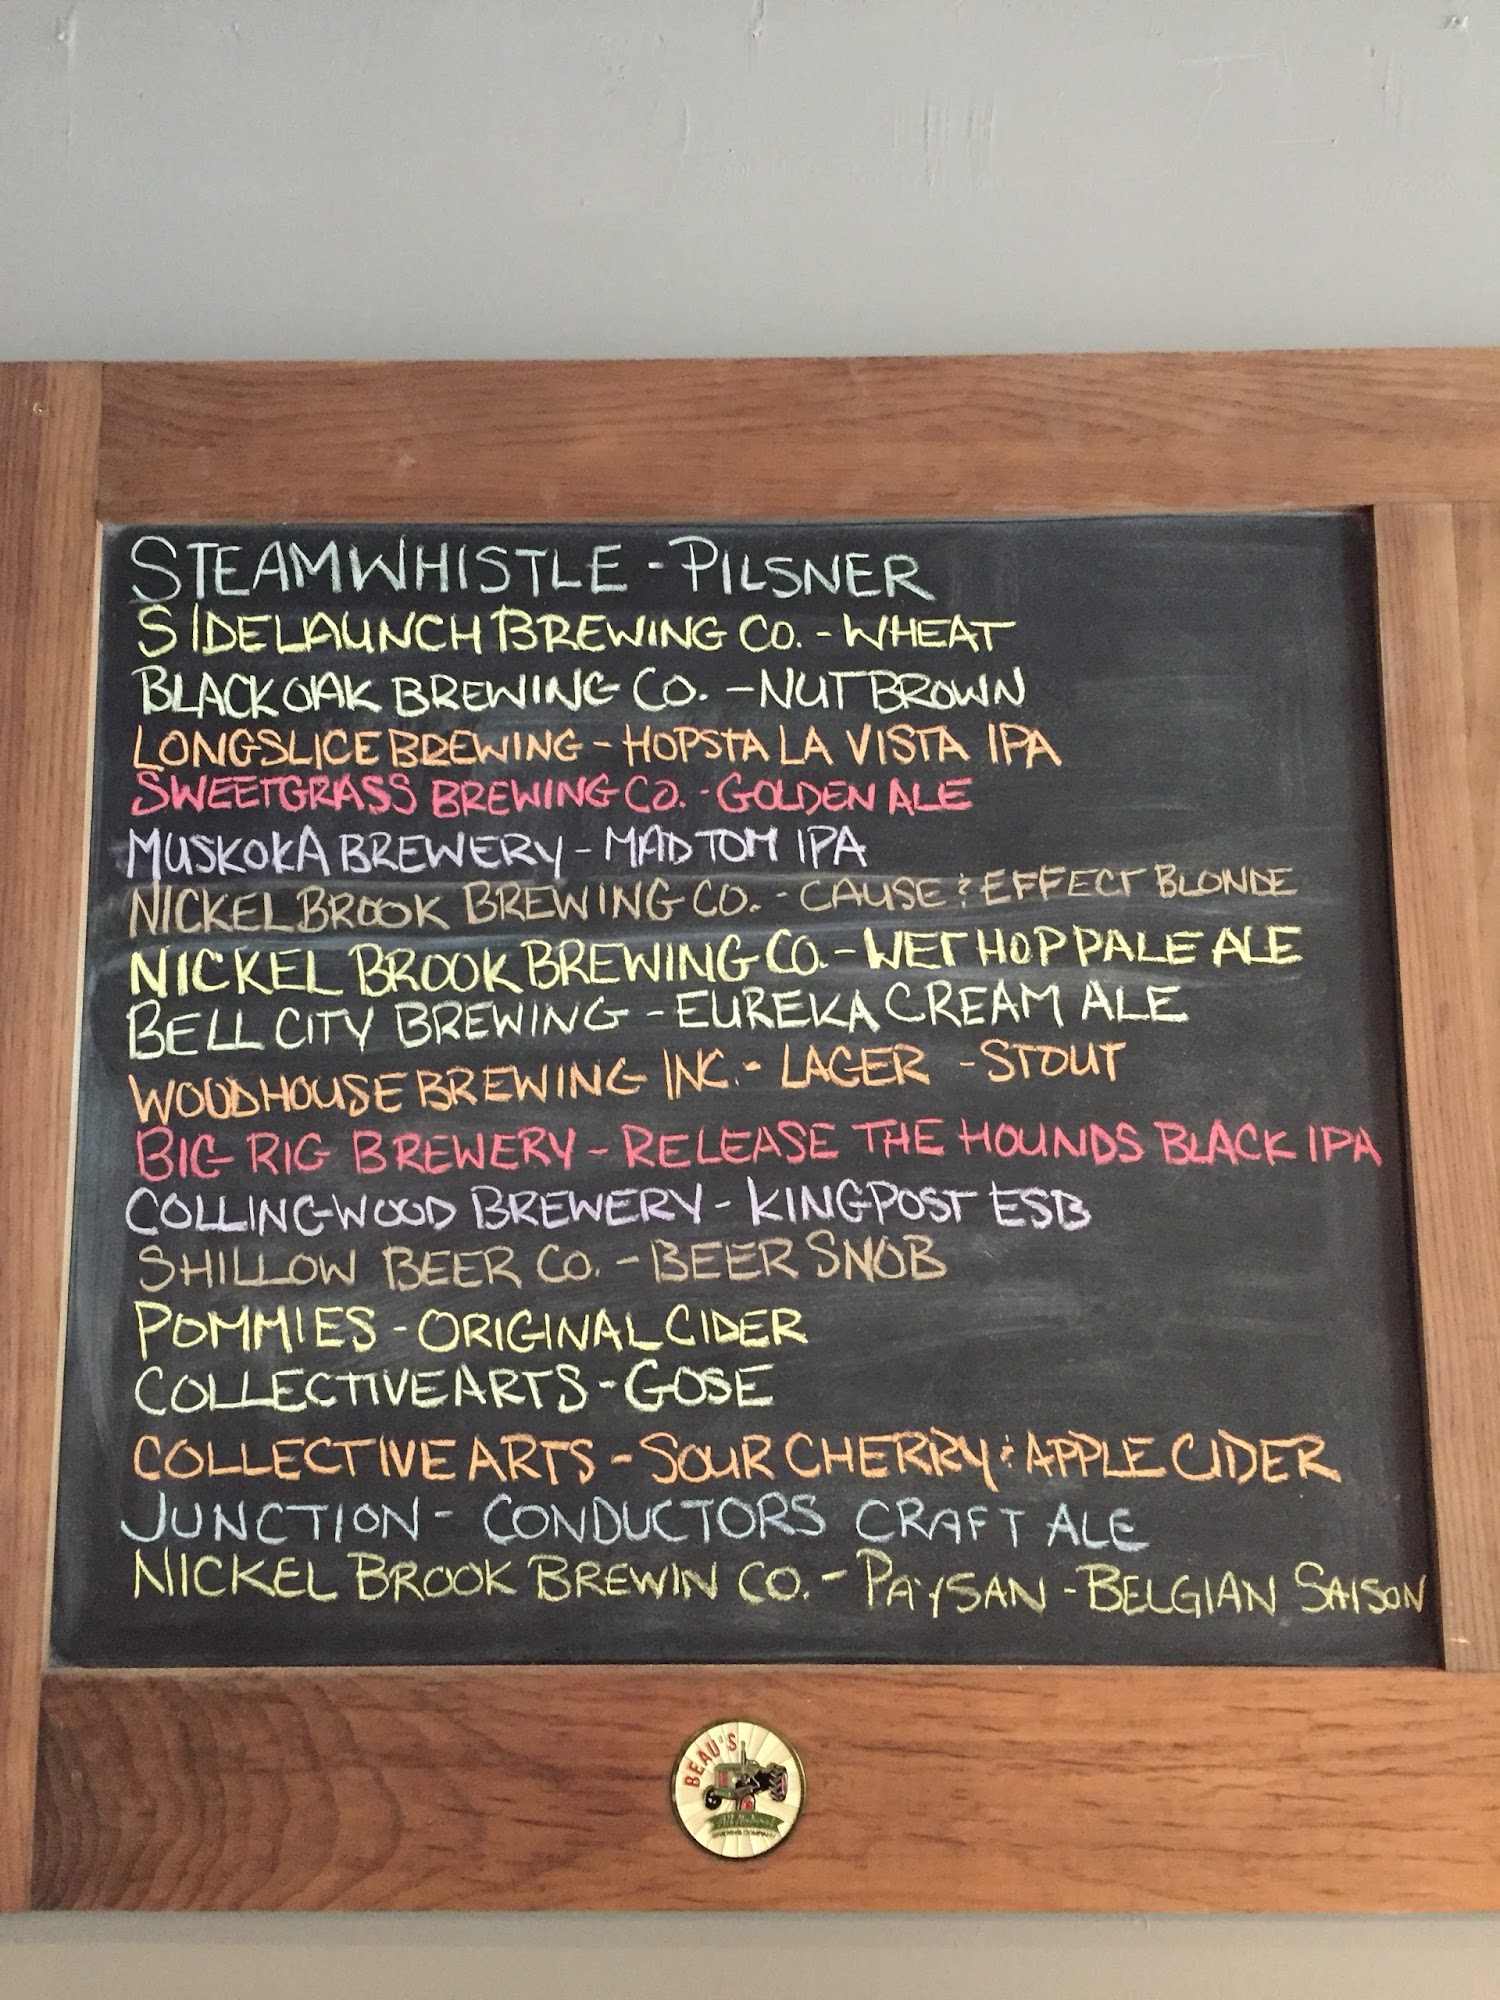 STEAMWHISTLE - PILSNER
SIDELAUNCH BREWING CO. - WHEAT
BLACK OAK BREWING CO. - NUT BROWN
LONGSLICE BREWING - HOPSTA LA VISTA IPA
SWEETGRASS BREWING CO. - GOLDEN ALE
MUSKOKA BREWERY - MAD TOM IPA
NICKEL BROOK BREWING CO. - CAUSE & EFFECT BLONDE
NICKEL BROOK BREWING CO. - WET HOP PALE ALE
BELL CITY BREWING - EUREKA CREAM ALE
WOODHOUSE BREWING INC. - LAGER - STOUT
BIG RIG BREWERY - RELEASE THE HOUNDS BLACK IPA
COLLINGWOOD BREWERY - KINGPOST ESB
SHILLOW BEER CO. - BEER SNOB
POMMIES - ORIGINAL CIDER
COLLECTIVE ARTS - GOSE
COLLECTIVE ARTS - SOUR CHERRY & APPLE CIDER
JUNCTION - CONDUCTORS CRAFT ALE
NICKEL BROOK BREWIN CO. - PAYSAN - BELGIAN SAISON
BEAU'S
BREWING COMPANY